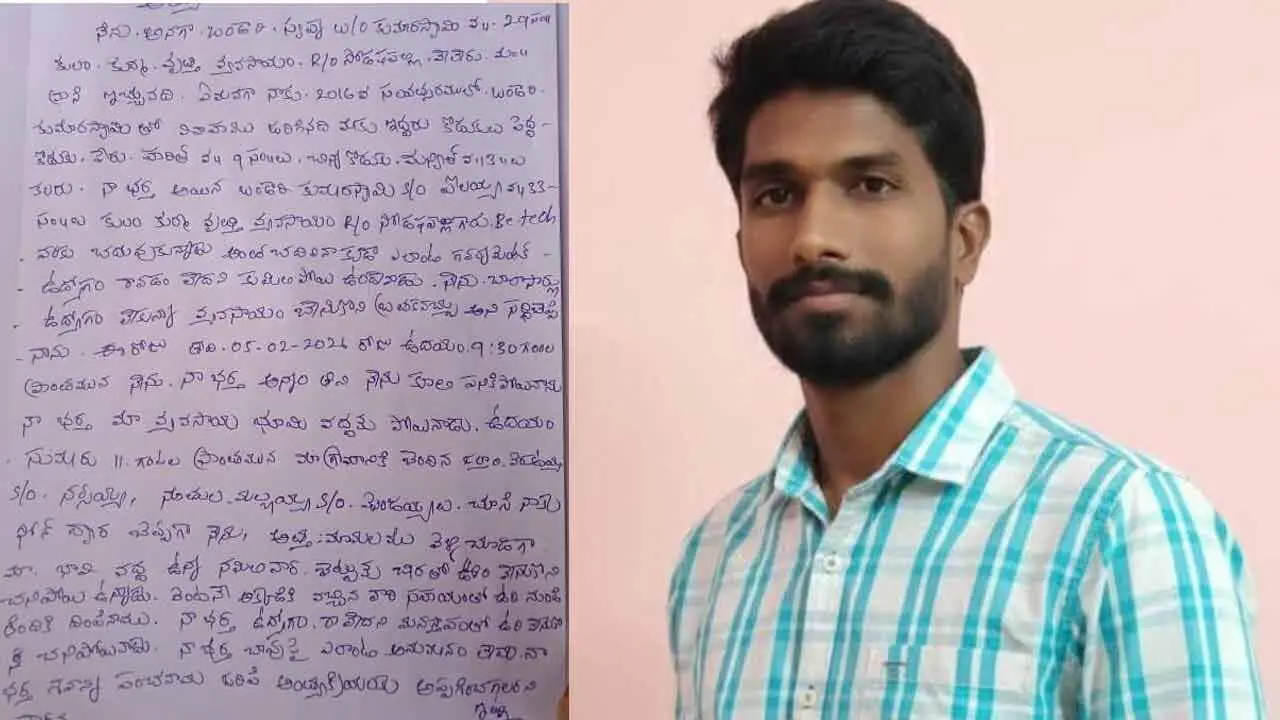 నేను. అనగా. బండారి. స్వప్న W/O కుమారస్వామి వ॥. 29 సం॥
కులం. కుర్మ. వృత్తి వ్యవసాయం. R/O సోడషపల్లి.
వ్రాసి ఇచ్చునది. ఏమనగా నాకు. 2016 వ సంవత్సరములో. బండారి.
కుమారస్వామి తో వివాహము జరిగినది మాకు ఇద్దరు కొడుకులు పెద్ద-
కొడుకు. పేరు. వ॥ 9 సం॥లు. చిన్న కొడుకు.
కలరు. నా భర్త అయిన బండారి కుమారస్వామి S/O వ॥ 33-
సం॥లు కులం కుర్మ వృత్తి వ్యవసాయం R/O Be tech
వరకు చదువుకున్నాడు అంత చదివినా కూడా ఎలాంటి గవర్నమెంట్-
ఉద్యోగం రావడం లేదని కుమిలిపోయి ఉండేవాడు. నేను. చాలాసార్లు
ఉద్యోగం లేకున్నా వ్యవసాయం చేసుకొని బ్రతకవచ్చు అని సర్దిచెప్పి
నాను. ఈ రోజు తేది. 05-02-2026 రోజు ఉదయం. 9:30 గం॥ల
ప్రాంతమున నేను. నా భర్త అన్నం తిని నేను కూలి పనికిపోయినాను
నా భర్త మా వ్యవసాయ భూమి వద్దకు పోయినాడు. ఉదయం
సుమారు 11. గంటల ప్రాంతమున మా గ్రామానికి చెందిన
S/O. నర్సయ్య, మల్లయ్య S/O. కొండయ్యలు. చూసి నాకు
ఫోన్ ద్వారా చెప్పగా నేను, అత్త:మామలము వెళ్లి చూడగా
మా. బావి వద్ద ఉన్న చెట్టుకు చీరతో ఉరి వేసుకొని
చనిపోయి ఉన్నాడు. వెంటనే అక్కడికి వచ్చిన వారి సహాయంతో ఉరి నుండి
క్రిందికి దింపినాము. నా భర్త ఉద్యోగం. రాలేదని మనస్తాపంతో ఉరి వేసుకొ
ని చనిపోయినాడు. నా భర్త చావుపై ఎలాంటి అనుమానం లేదు. నా
భర్త శవాన్ని పంచనామ జరిపి అంత్యక్రియలకు అప్పగించగలరని